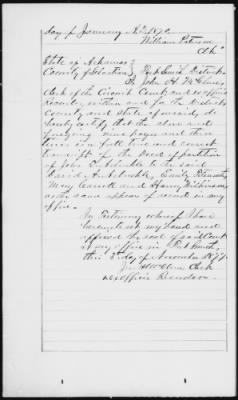 day of January 8th 1872
William Peterson
Clk
State of Arkansas
County of Sebastian Fort Smith District
I, John H. McClure,
Clerk of the Circuit Court and ex officio
Recorder within and for the District
County and State aforesaid, do
hereby certify that the above and
foregoing nine pages and then
lines are full true and correct
transcript of the Deed of partition
of John to the said
David, Emily Peterson
Mary and Henry
as the same appear of record in my
office.
In Testimony whereof I have
hereunto set my hand and
affixed the seal of said Court
at my office in Fort Smith,
this 2 day of November 1877.
Jno H McClure Clerk
ex officio Recorder